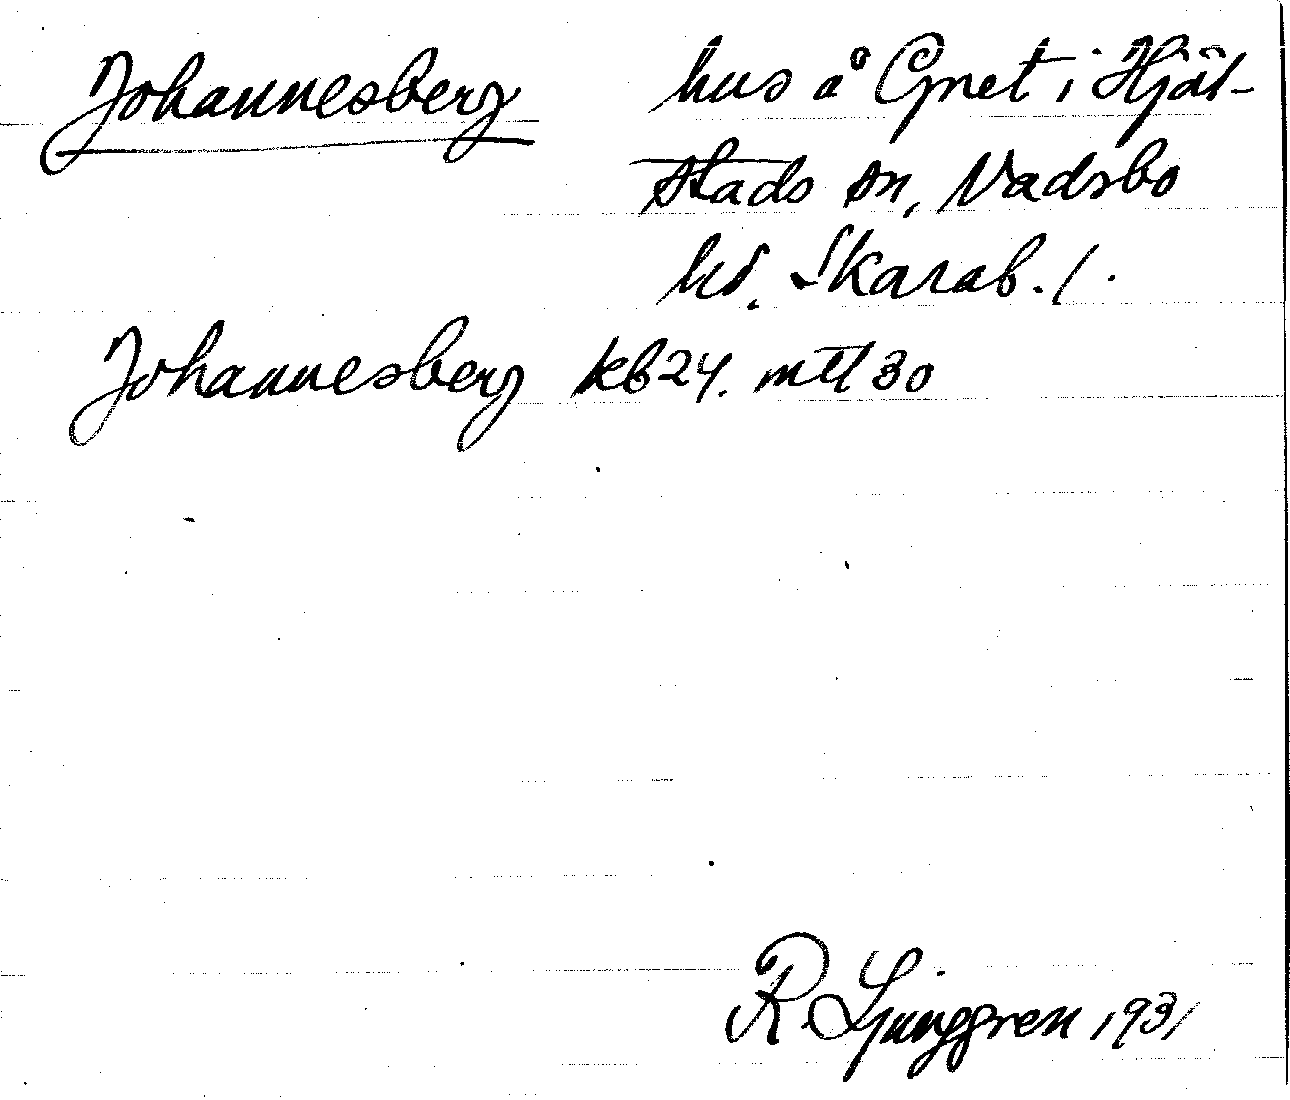 Johannesberg hus å Gnet i Hjäl-
stads sn, Vadsbo
hd. Skarab. l.
Johannesberg kb 24. mtl 30
R. Ljunggren 1931